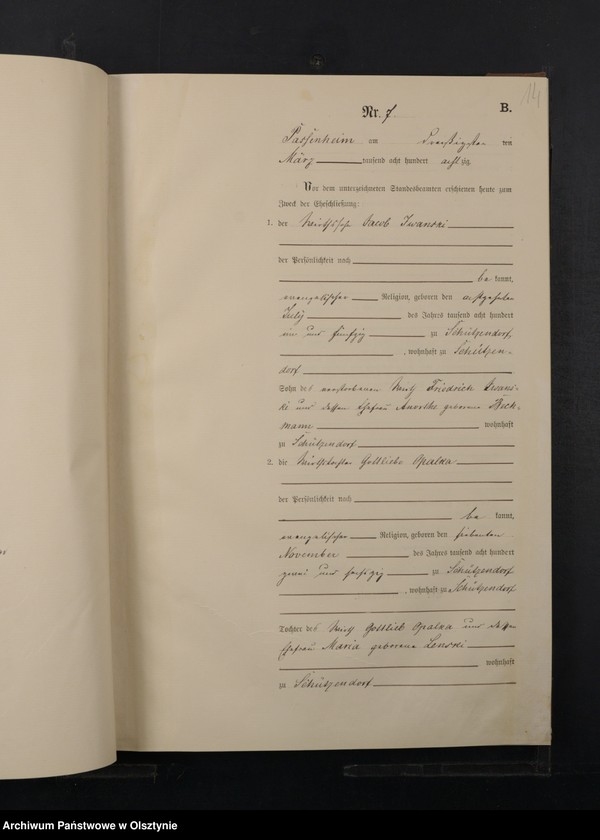 14
Nr. 7
B.
Passenheim am dreißigsten ten
März tausend acht hundert achtzig.
Vor dem unterzeichneten Standesbeamten erschienen heute zum
Zweck der Eheschließung:
1. der Wirthssohn Jacob Iwanski
der Persönlichkeit nach
be kannt,
evangelischer Religion, geboren den achtzehnten
July des Jahres tausend acht hundert
ein und fünfzig zu Schützendorf,
, wohnhaft zu Schützen-
dorf
Sohn des verstorbenen Wirth Friedrich Iwans-
ki und dessen Ehefrau geborene Beck-
mann wohnhaft
zu Schützendorf
2. die Wirthstochter Gottliebe Opalka
der Persönlichkeit nach
be kannt,
evangelischer Religion, geboren den siebenten
November des Jahres tausend acht hundert
zwei und sechszig zu Schützendorf
, wohnhaft zu Schützendorf
Tochter des Wirth Gottlieb Opalka und dessen
Ehefrau Maria geborene Lenski
wohnhaft
zu Schützendorf
Archiwum Państwowe w Olsztynie